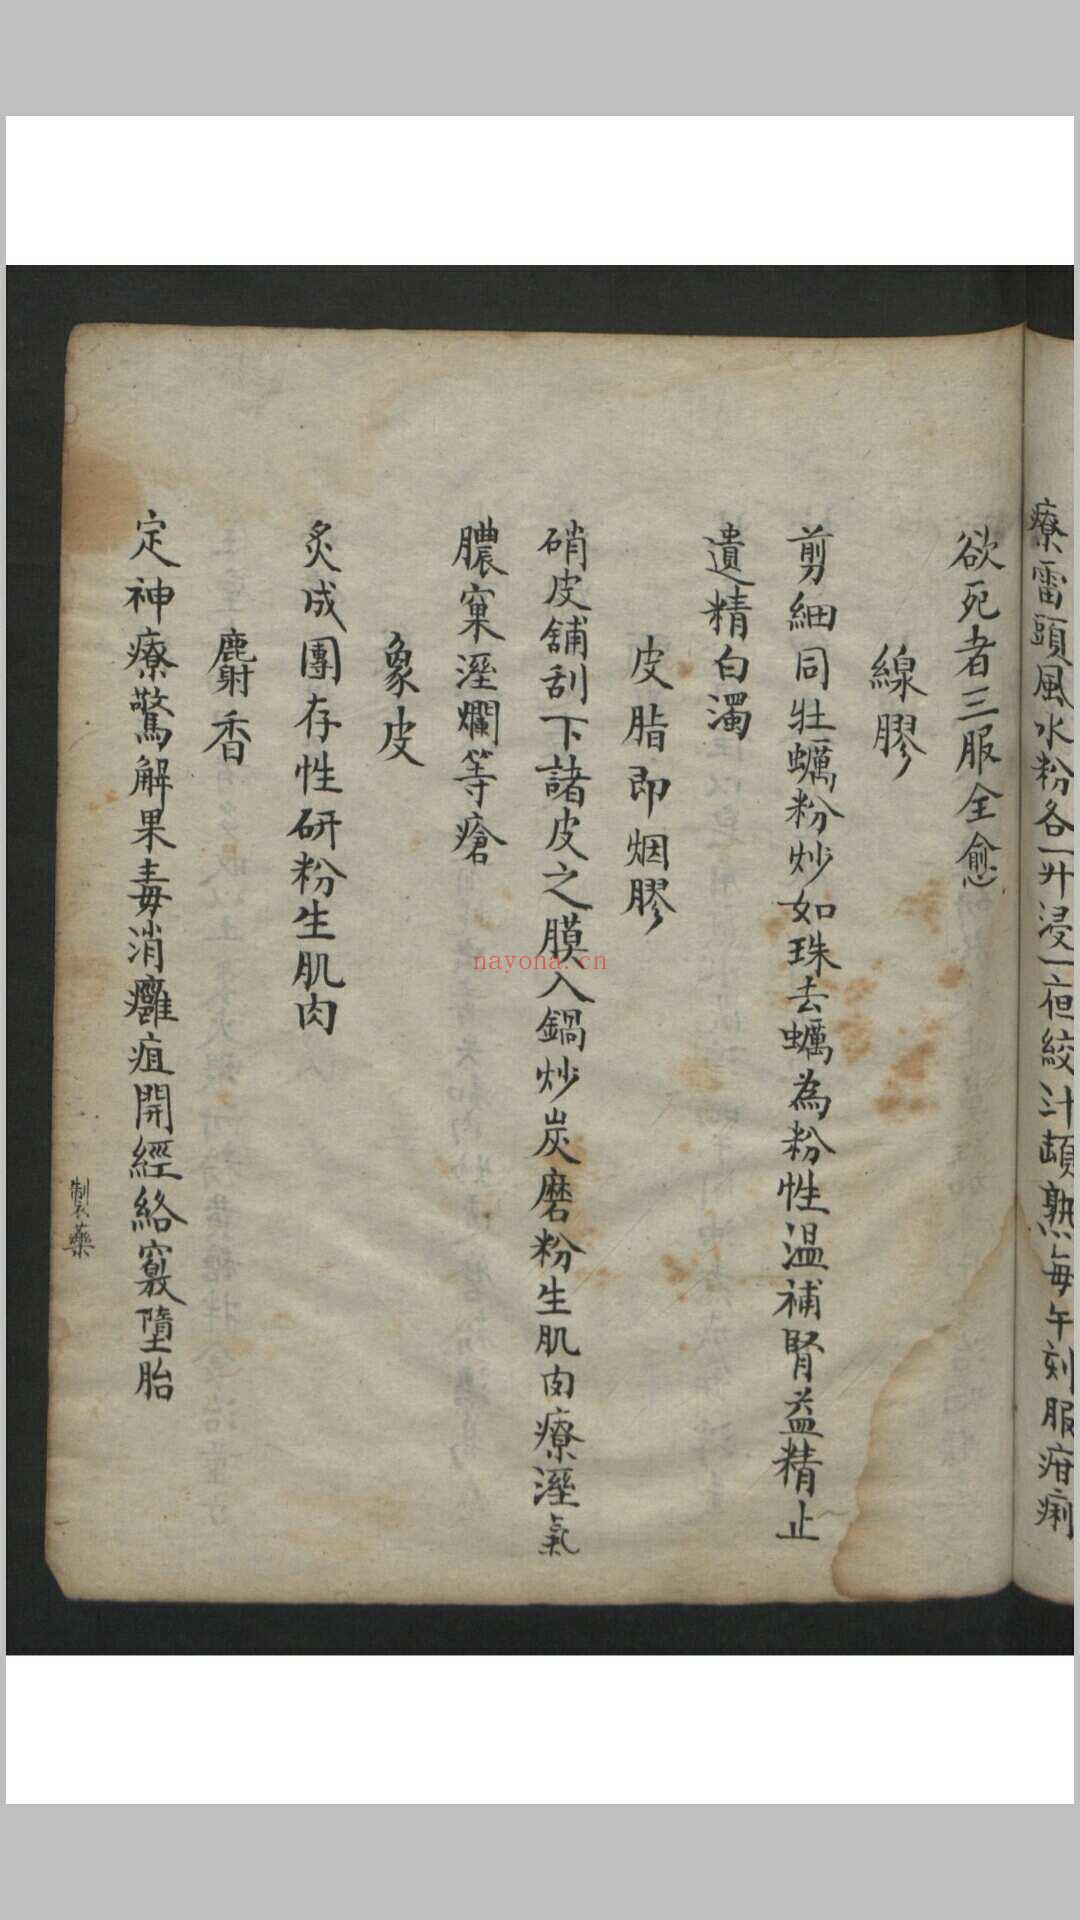 療雷頭風水粉各一升浸一宿絞汁頓熟每午刻服疳痢
欲死者三服全愈
線膠
剪細同牡蠣粉炒如珠去蠣為粉性温補腎益精止
遺精白濁
皮脂即烟膠
硝皮舖刮下諸皮之膜入鍋炒炭磨粉生肌肉療溼氣
膿窠溼爛等瘡
象皮
炙成團存性研粉生肌肉
麝香
定神療驚解果毒消癰疽開經絡竅墮胎
製藥
nayona.cn